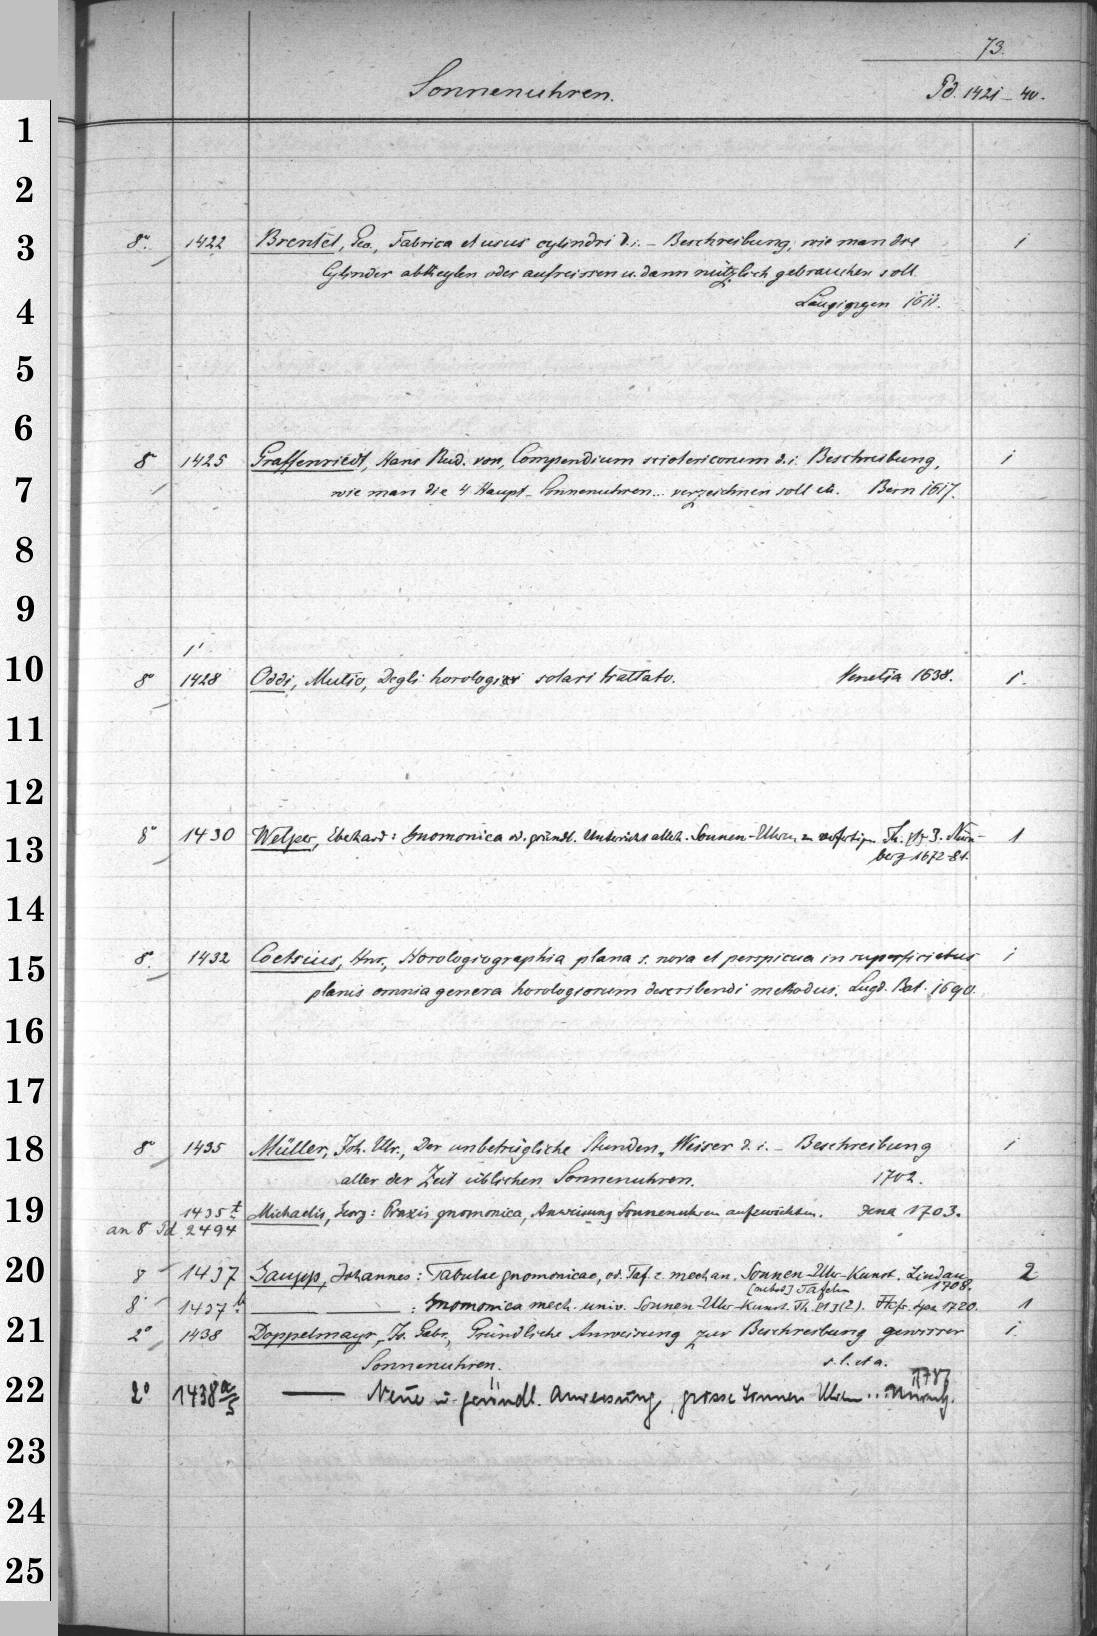 73.
Sonnenuhren. Pd. 1421-40.
1
2
3 8° 1422 Brentel, Geo., Fabrica et usus cylindri d.i. - Beschreibung, wie man die 1
Cylinder abtheylen oder aufreissen u. dann nützlich gebrauchen soll
4 Laugingen 1611.
5
6
8° 1425 Graffenriedt, Hans Rud. von, Compendium sciotericorum d.i. Beschreibung, 1
7 wie man die 4 Haupt-Sonnenuhren... verzeichnen soll etc. Bern 1617.
8
9
10 8° 1428 Oddi, Mutio, Degli horologi solari trattato. Venetia 1638. 1.
11
12
13 8° 1430 Welper, Eberhard: Gnomonica od. gründl. Unterricht allerh. Sonnen-Uhren zu verfertigen. Th. 3. Nürn- 1
berg 1672-81.
14
15 8° 1432 Coetsius, Hnr., Horologiographia plana s. nova et perspicua in superficiebus 1
planis omnia genera horologiorum describendi methodus. Lugd. Bat. 1690.
16
17
18 8° 1435 Müller, Joh. Ulr., Der unbetrügliche Stunden-Weiser d.i. - Beschreibung 1
aller der Zeit üblichen Sonnenuhren. 1702.
19 1435 t Michaelis, Georg: Praxis gnomonica, Anweisung Sonnenuhren aufzurichten. Jena 1703.
an 8° Pd 2494
20 8 1437 Gaupp, Johannes: Tabulae gnomonicae, od. Taf. z. mechan. Sonnen-Uhr-Kunst. Lindau 2
1708.
[nebst] Tafeln
8° 1437 b — — : Gnomonica mech. univ. Sonnen-Uhr-Kunst. Th. (2). 1720. 1
21 2° 1438 Doppelmayr, Jo. Gabr., Gründliche Anweisung zur Beschreibung gewisser 1
Sonnenuhren. s.l. et a.
22 2° 1438 a/5 — Neue u. gründl. Anweisung, grosse Sonnen Uhren .. Nürnbg.
23
24
25